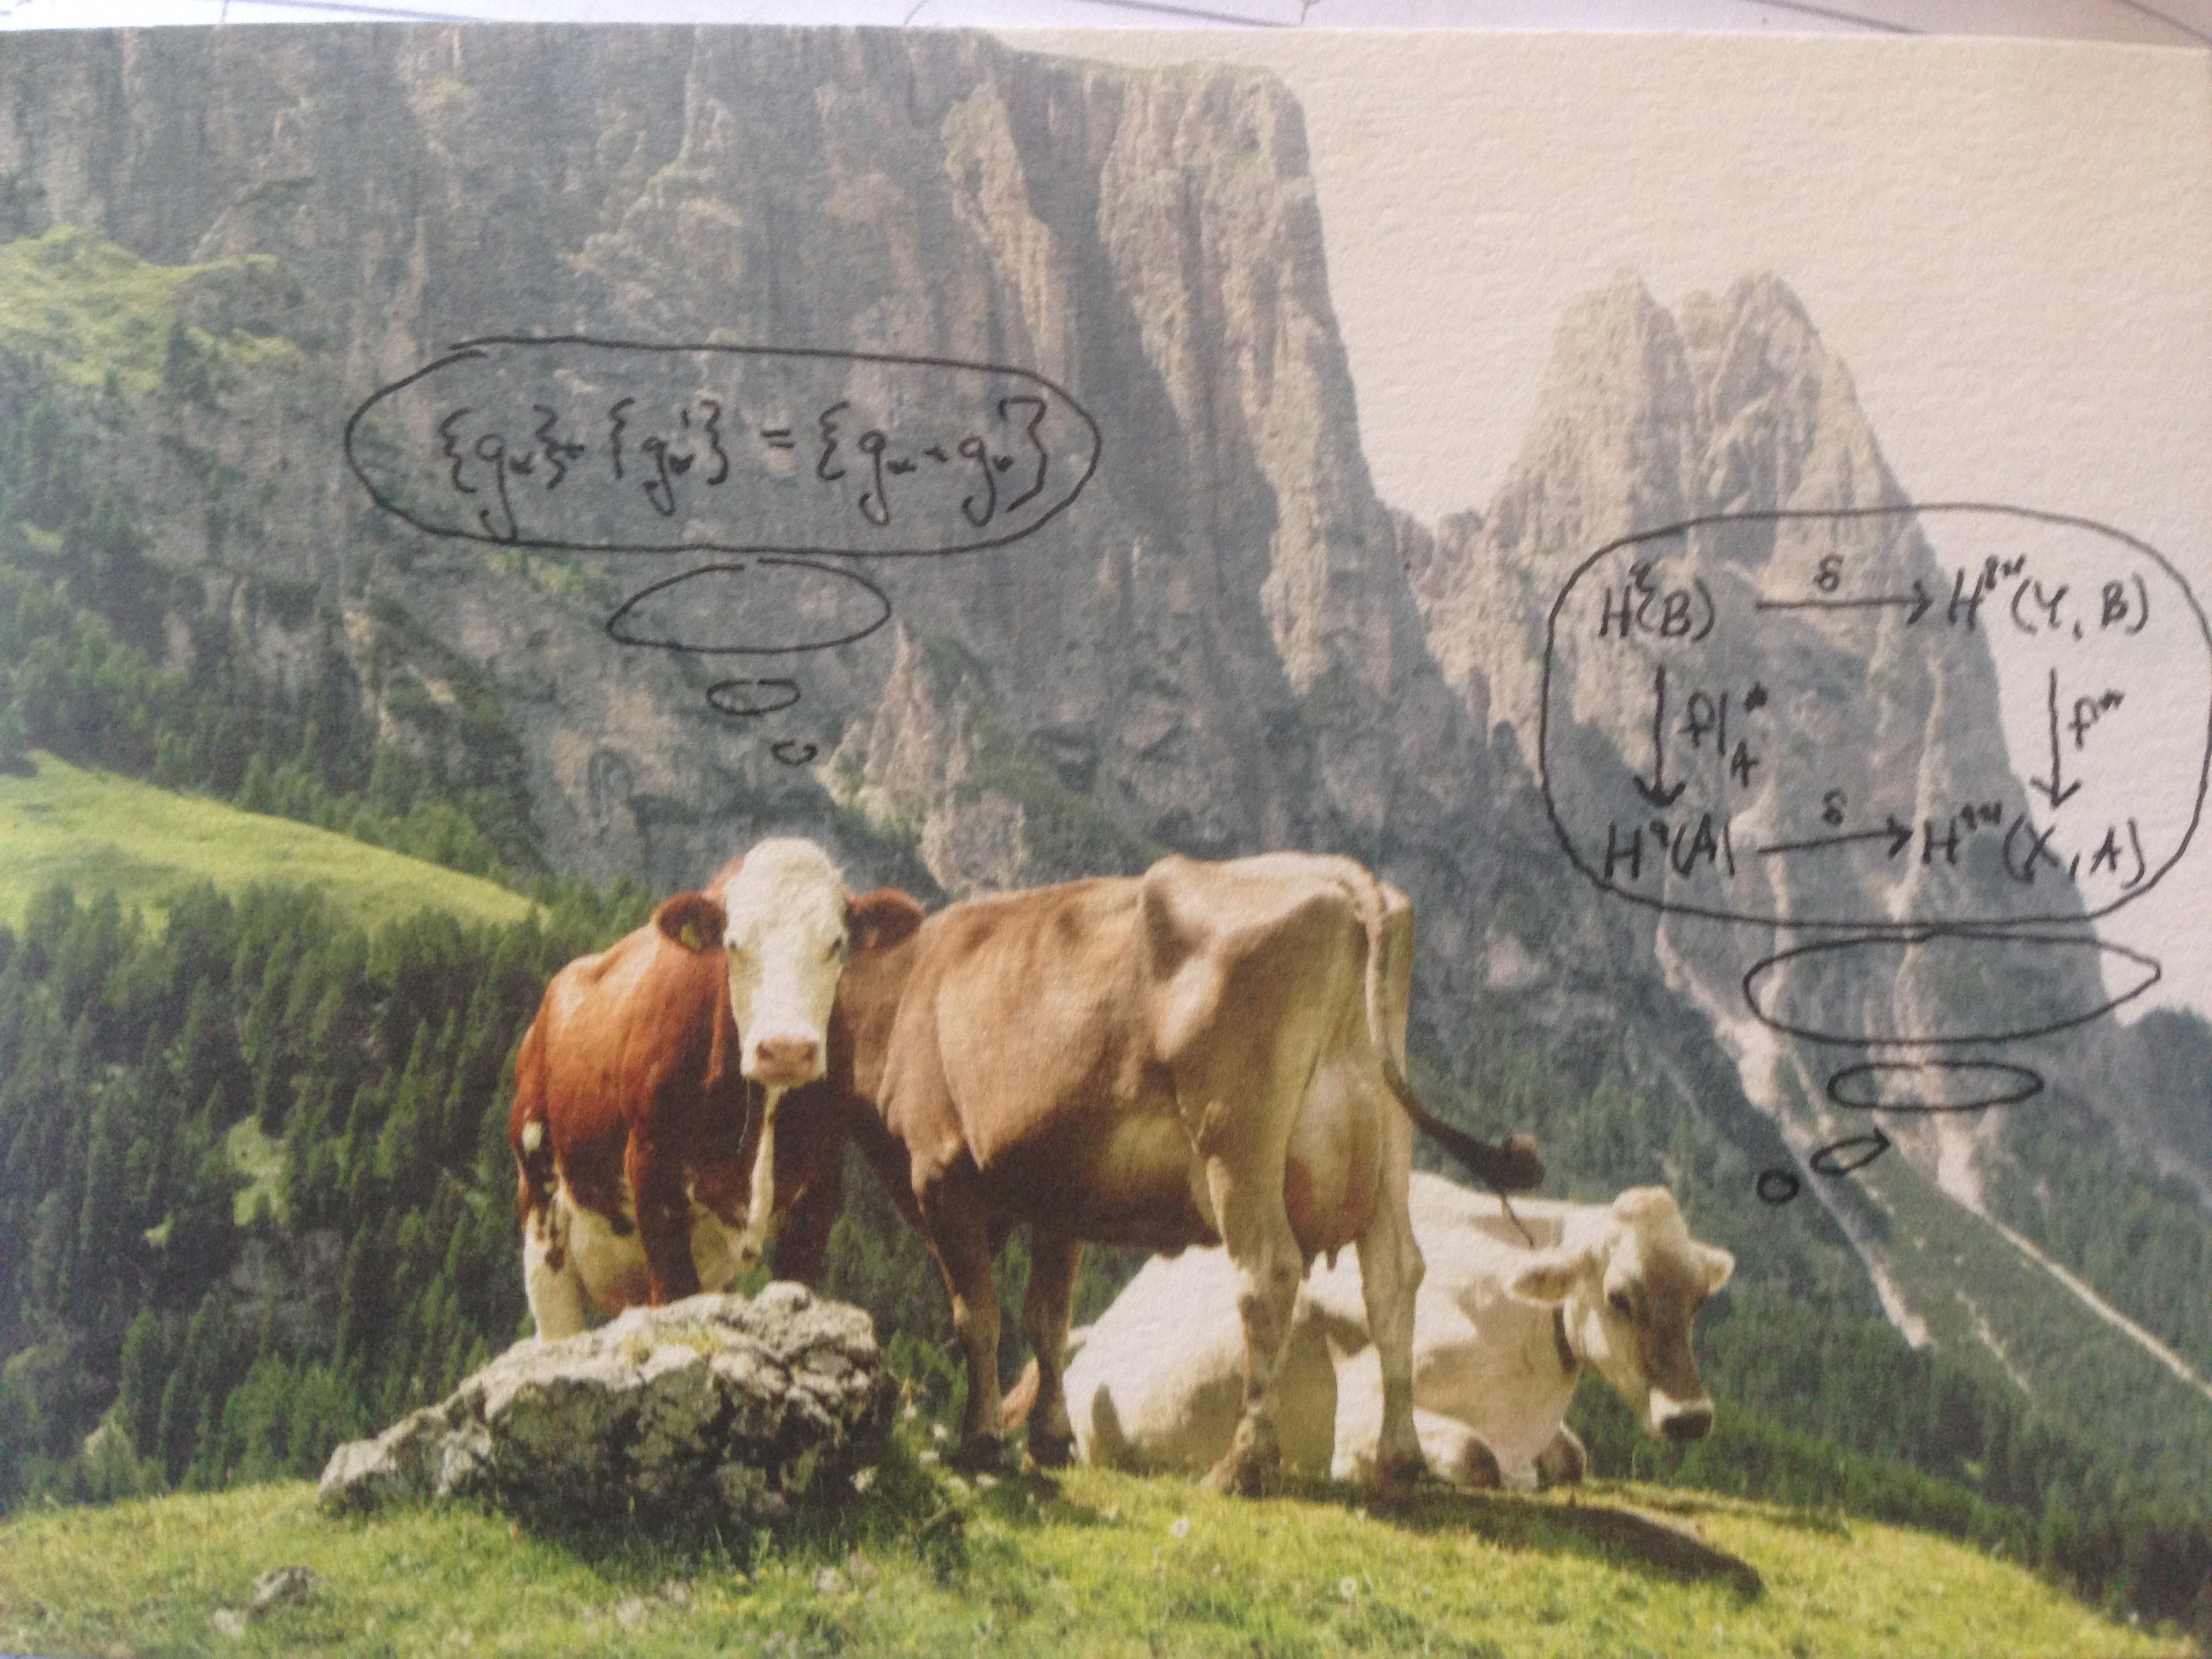 {gₐ}+{gₐ'} = {gₐ+gₐ'}
H^q(B) δ→ H^{q+1}(Y, B)
↓ f|_A^* ↓ f^*
H^q(A) δ→ H^{q+1}(X, A)